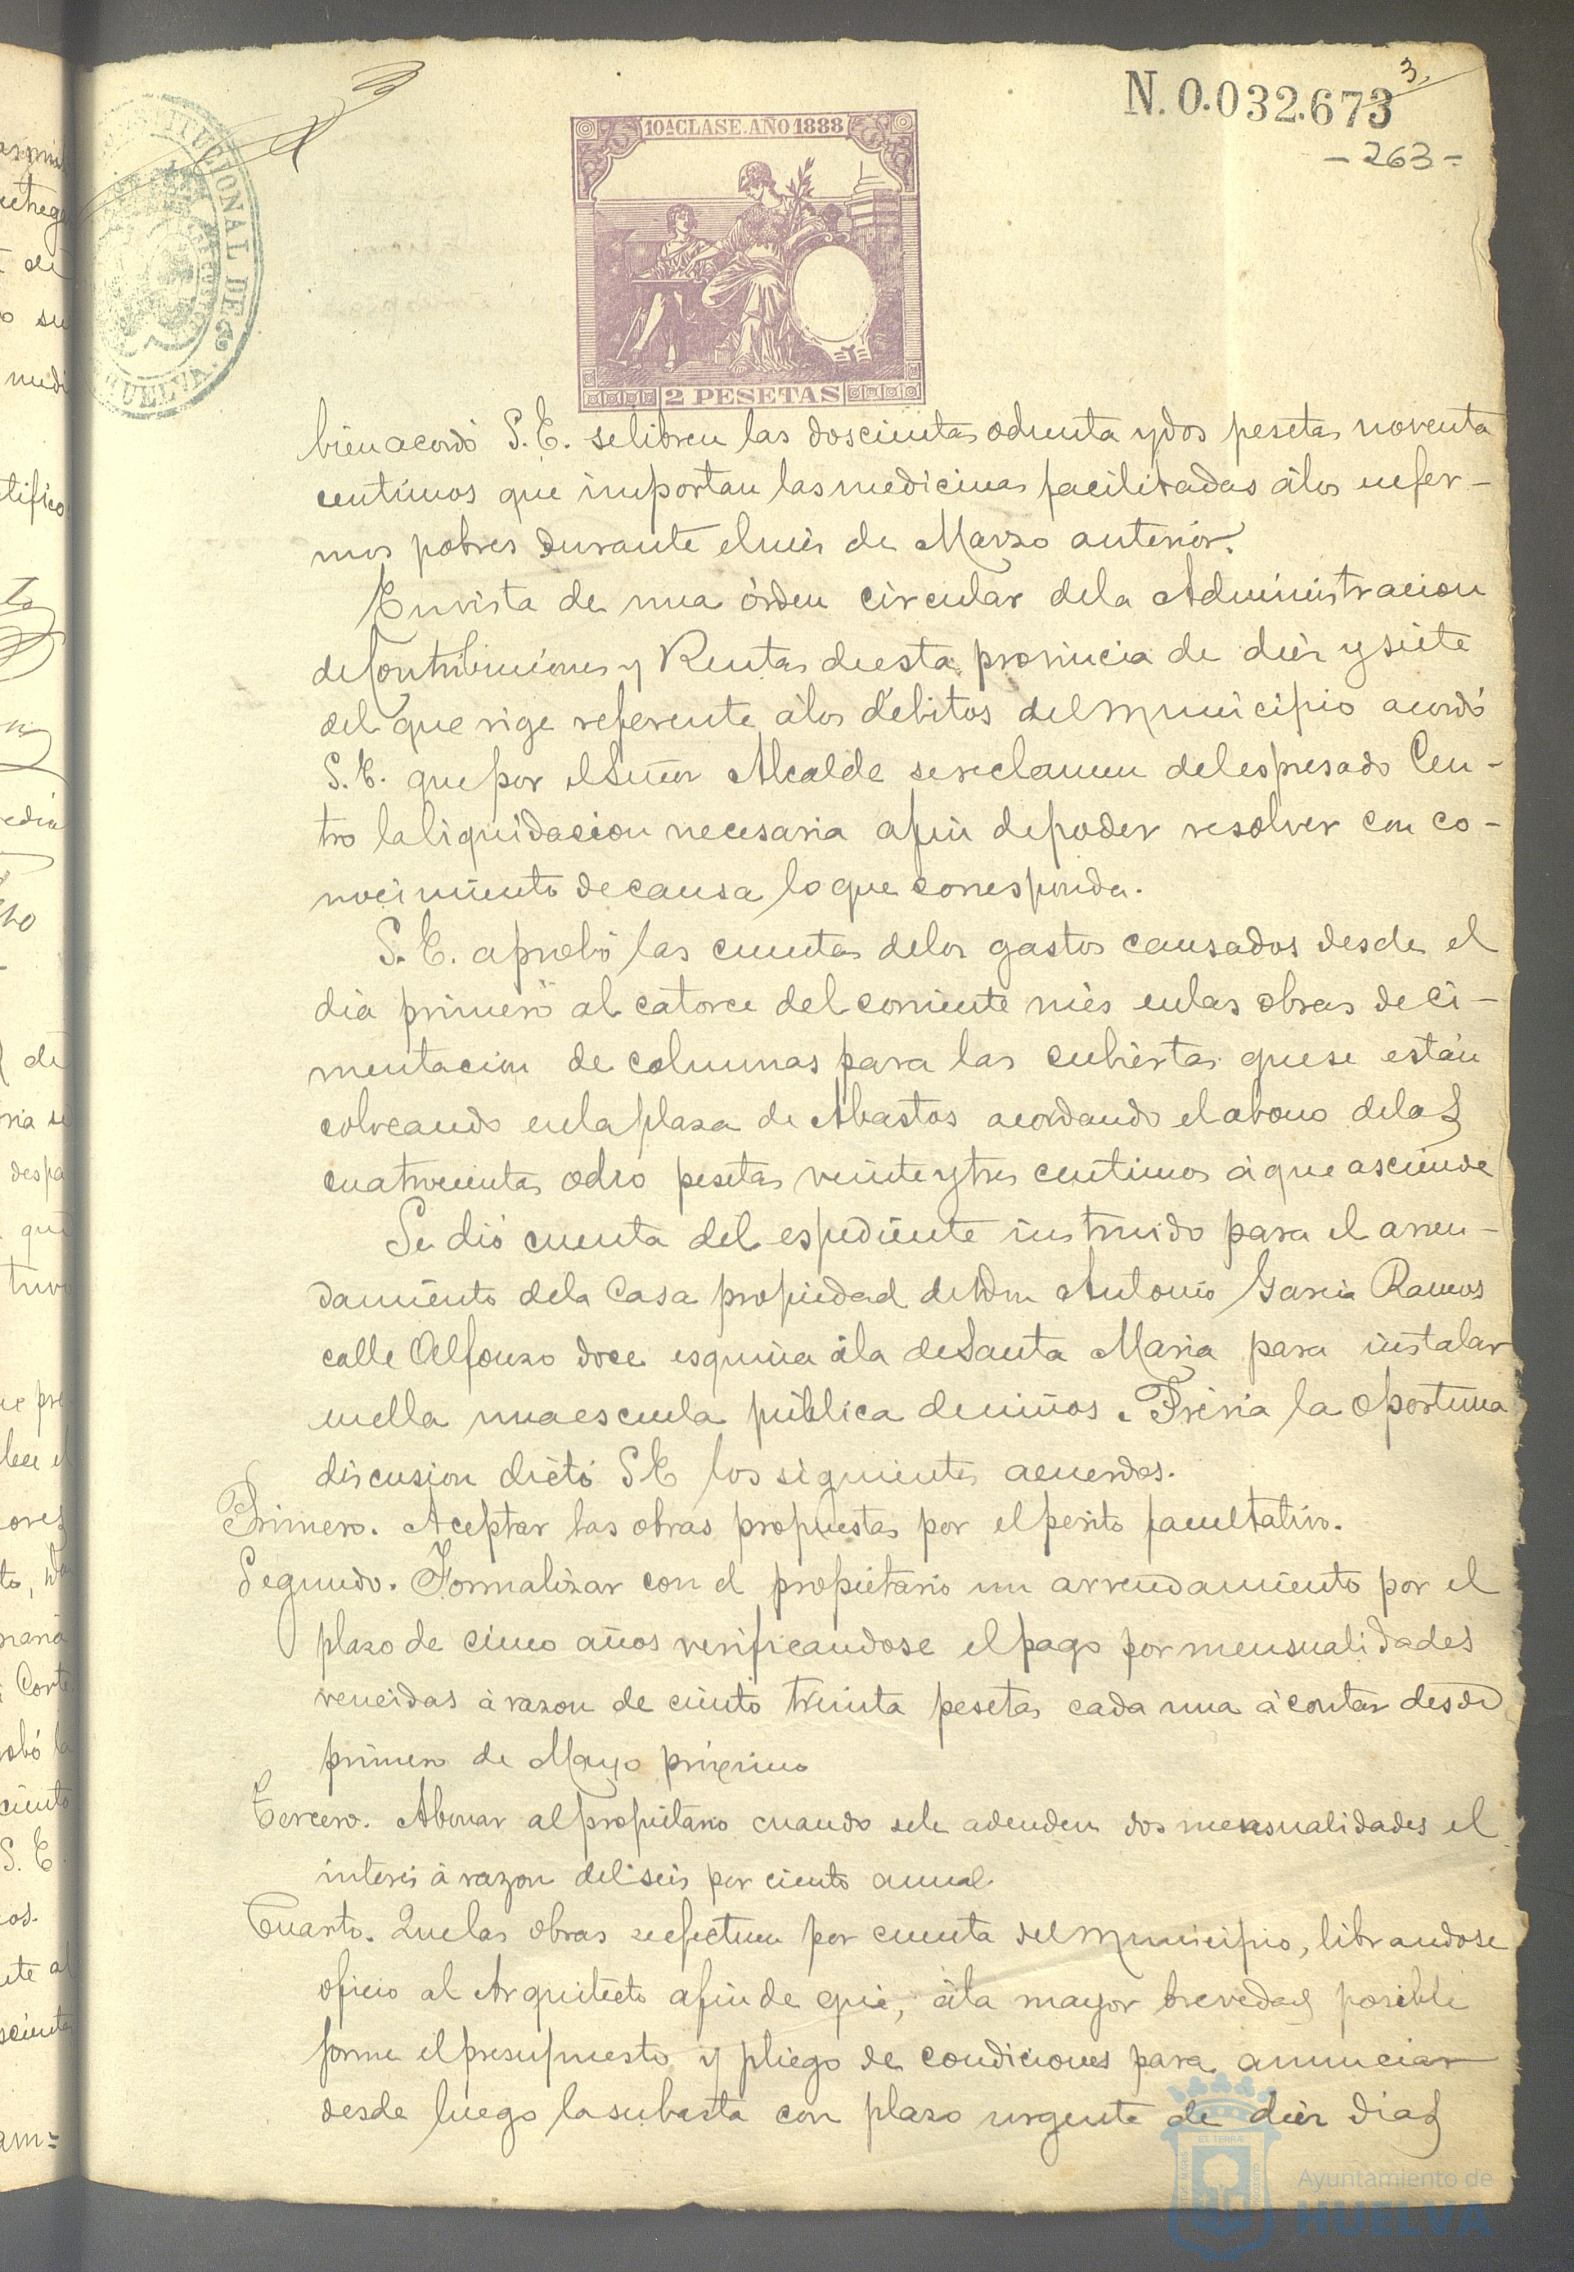 3,
N. 0.032.673
- 263 -
10ª CLASE. AÑO 1888
CONSTITUCIONAL DE
HUELVA.
2 PESETAS
bien acordó S. E. se libren las doscientas ochenta y dos pesetas noventa
centimos que importan las medicinas facilitadas á los enfer-
mos pobres durante el mes de Marzo anterior.
En vista de una órden circular de la Administracion
de Contribuciones y Rentas de esta provincia de diez y siete
del que rige referente á los débitos del Municipio acordó
S. E. que por el Señor Alcalde se reclamen del espresado Cen-
tro la liquidacion necesaria afin de poder resolver con co-
nocimiento de causa lo que corresponda.
S. E. aprobó las cuentas de los gastos causados desde el
dia primero al catorce del corriente mes en las obras de ci-
mentacion de columnas para las cubiertas que se están
colocando en la plaza de Abastos acordando el abono de las
cuatrocientas ocho pesetas veinte y tres centimos á que asciende
Se dió cuenta del espediente instruido para el arren-
damiento de la Casa propiedad de Don Antonio Garcia Ramos
calle Alfonso doce esquina á la de Santa Maria para instalar
en ella una escuela pública de niños. Prévia la oportuna
discusion dictó S E los siguientes acuerdos.
Primero. Aceptar las obras propuestas por el perito facultativo.
Segundo. Formalizar con el propietario un arrendamiento por el
plazo de cinco años verificandose el pago por mensualidades
vencidas á razon de ciento treinta pesetas cada una á contar desde
primero de Mayo próximo
Tercero. Abonar al propietario cuando se le adeuden dos mensualidades el
interes á razon del seis por ciento anual.
Cuarto. Que las obras se efectuen por cuenta del Municipio, librandose
oficio al Arquitecto afin de que, á la mayor brevedad posible
forme el presupuesto y pliego de condiciones para anunciar
desde luego la subasta con plazo urgente de diez dias
Ayuntamiento de
HUELVA